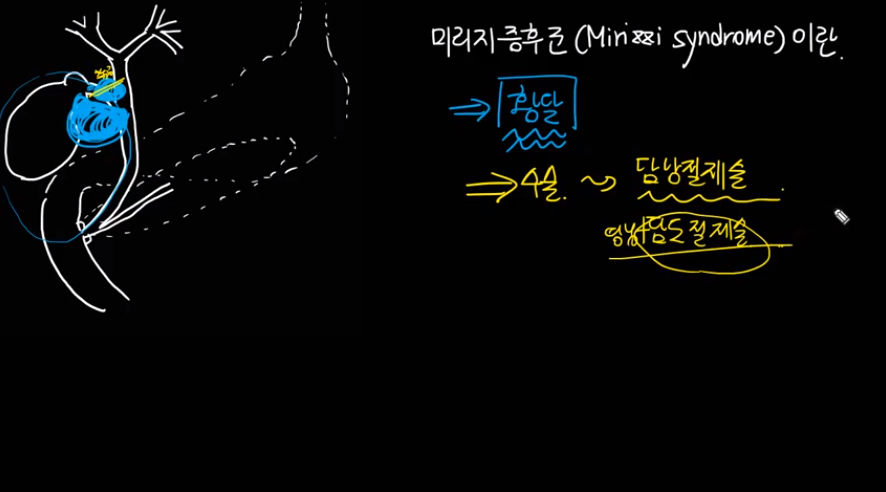 미리지증후군 (Mirizzi syndrome) 이란.
⇒ 황달
⇒ 수술. ~ 담낭절제술
담도절제술